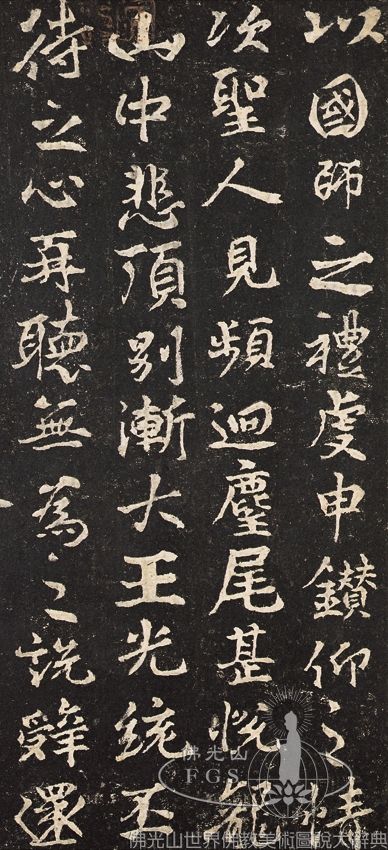 以國師之禮虔申鑽仰之情
次聖人見頻迴麈尾甚悅
山中悲頂別漸大王光統不
待之心再聽無為之說辭還
佛光山
FGS
佛光山世界佛教美術圖說大辭典